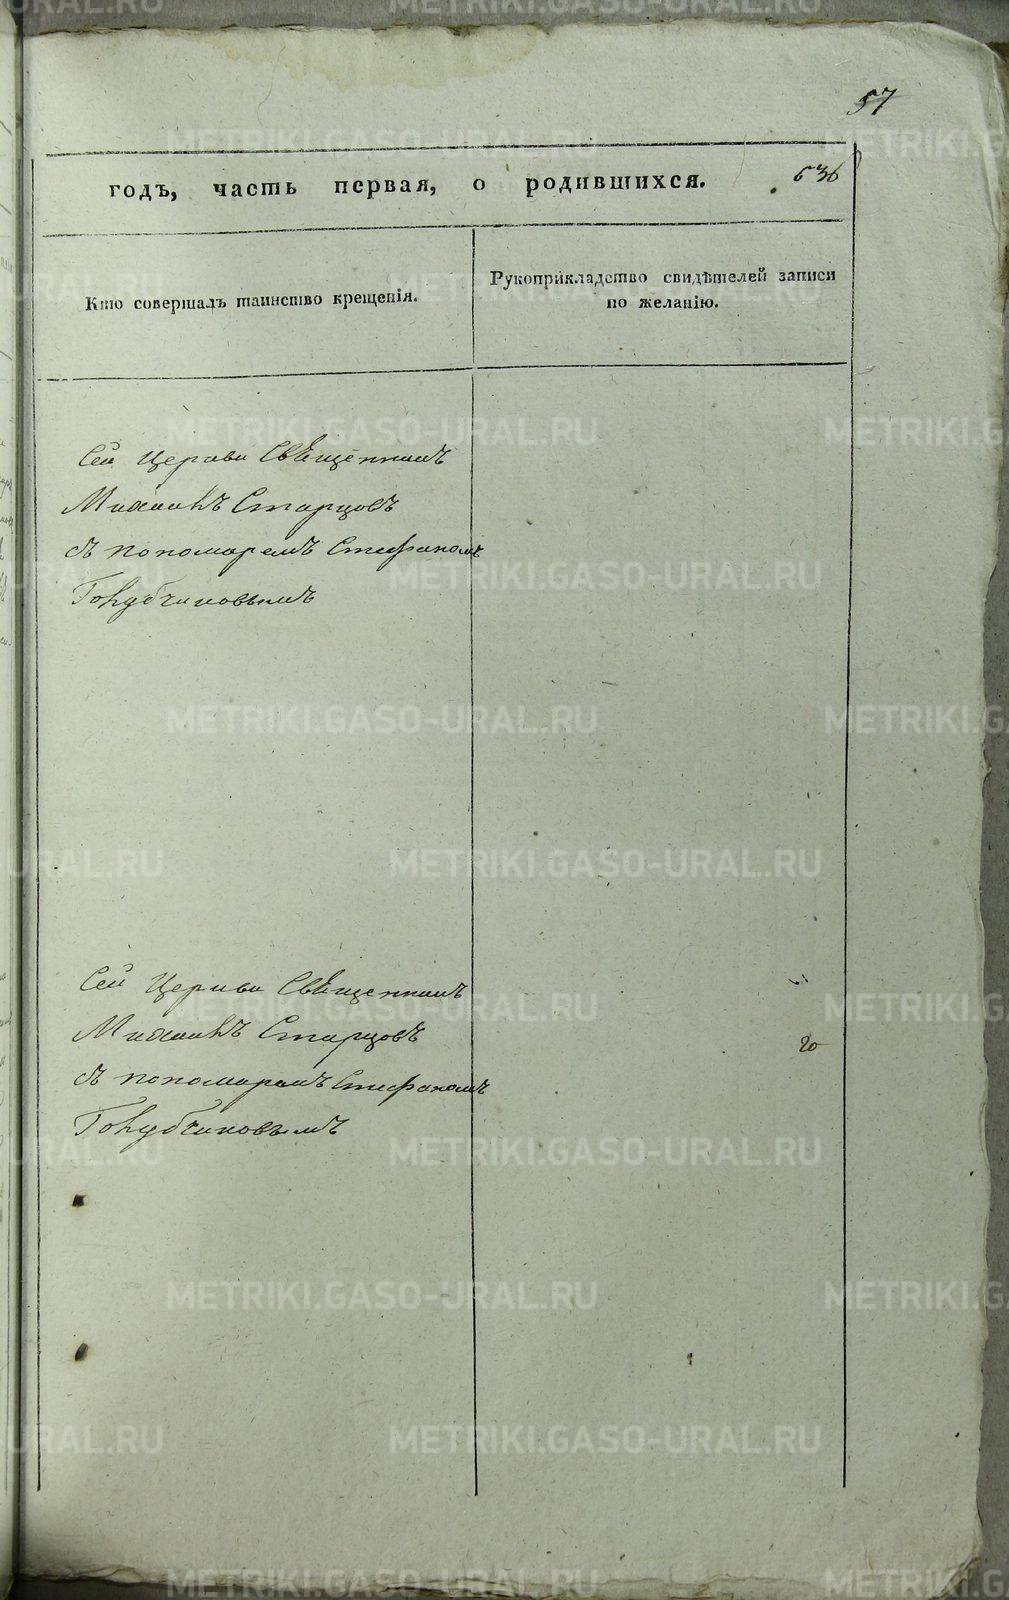 57
годъ, часть первая, о родившихся.
636
Кто совершалъ таинство крещенія.
Рукоприкладство свидѣтелей записи
по желанію.
Сей Церкви Свѣщенникъ
Михаилъ Старцовъ
съ пономаремъ Стефаномъ
Голубчиковымъ
Сей Церкви Свѣщенникъ
Михаилъ Старцовъ
20
съ пономаремъ Стефаномъ
Голубчиковымъ
METRIKI.GASO-URAL.RU